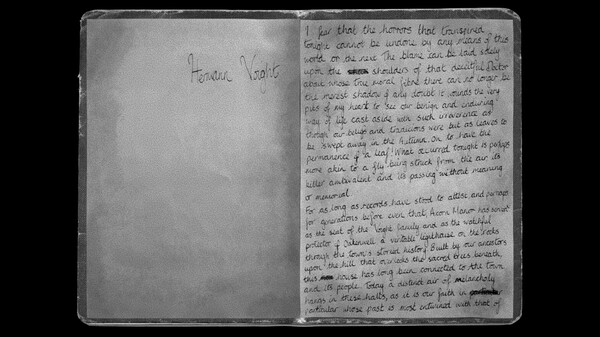 Hermann Voght
I fear that the horrors that transpired
tonight cannot be undone by any means of this
world or the next. The blame can be laid solely
upon the shoulders of that deceitful Doctor
about whose true moral fibre there can no longer be
the merest shadow of any doubt. It wounds the very
pits of my heart to see our benign and enduring
way of life cast aside with such irreverence as
though our beliefs and traditions were but as leaves to
be swept away in the Autumn. Oh to have the
permanence of a leaf! What occurred tonight is perhaps
more akin to a fly being struck from the air, its
killer ambivalent and its passing without meaning
or memorial.
For as long as records have stood to attest, and perhaps
for generations before even that, Acorn Manor has served
as the seat of the Voght family and as the watchful
protector of, a veritable lighthouse on the rocks
through the town's storied history. Built by our ancestors
upon the hill that overlooks the sacred trees beneath,
this house has long been connected to the town
and its people. Today a distinct air of melancholy
hangs in these halls, as it is our faith in
particular whose past is most entwined with that of